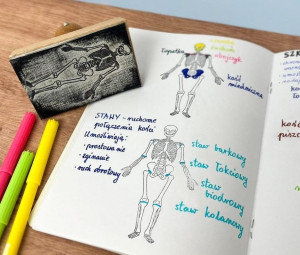 łopatka
obojczyk
kość
miednicza
STAWY - ruchome
połączenia kości
Umożliwiają:
- prostowanie
- zginanie
- ruch obrotowy
staw barkowy
staw łokciowy
staw
biodrowy
staw kolanowy
SZK
kość